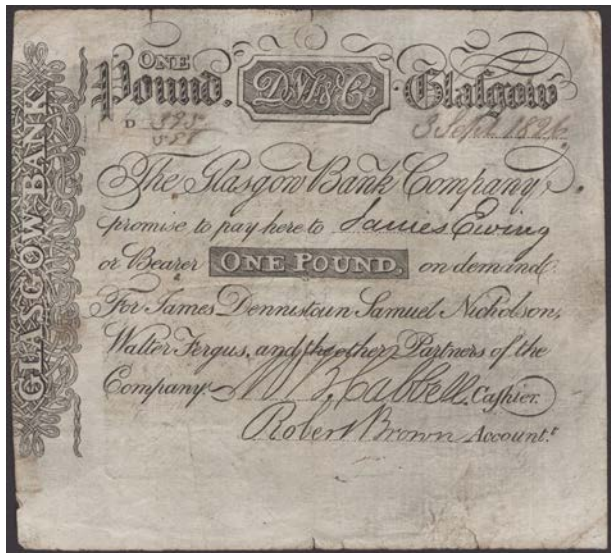 ONE
Pound. D.N.&Co. Glasgow
D 3 Sept. 1826
The Glasgow Bank Company,
promise to pay here to James Ewing
or Bearer ONE POUND, on demand
For James Dennistoun Samuel Nicholson,
Walter Fergus, and the other Partners of the
Company. Cashier.
Robert Brown Account.t
GLASGOW BANK